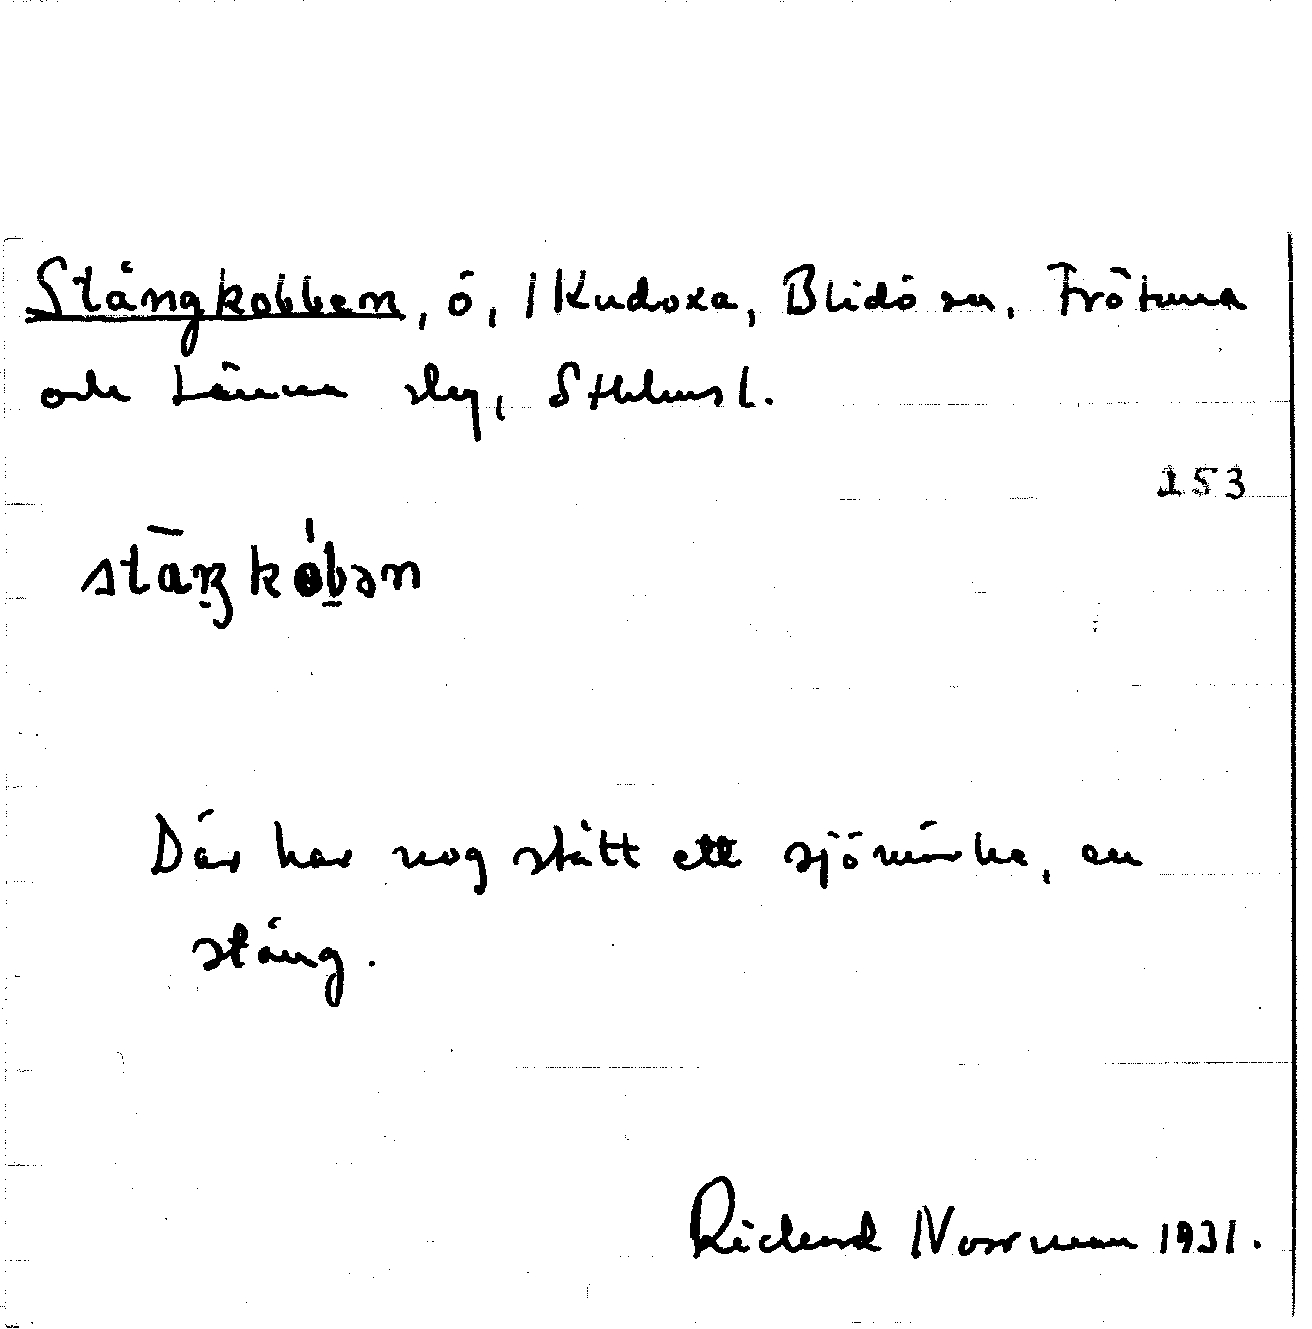 Stångkobben, ö, 1 Kudoxa, Blidö sn, Frötuna
och Länna slg, Sthlms l.
153
Där har nog stått ett sjömärke, en
stång.
Richard Norrman 1931.